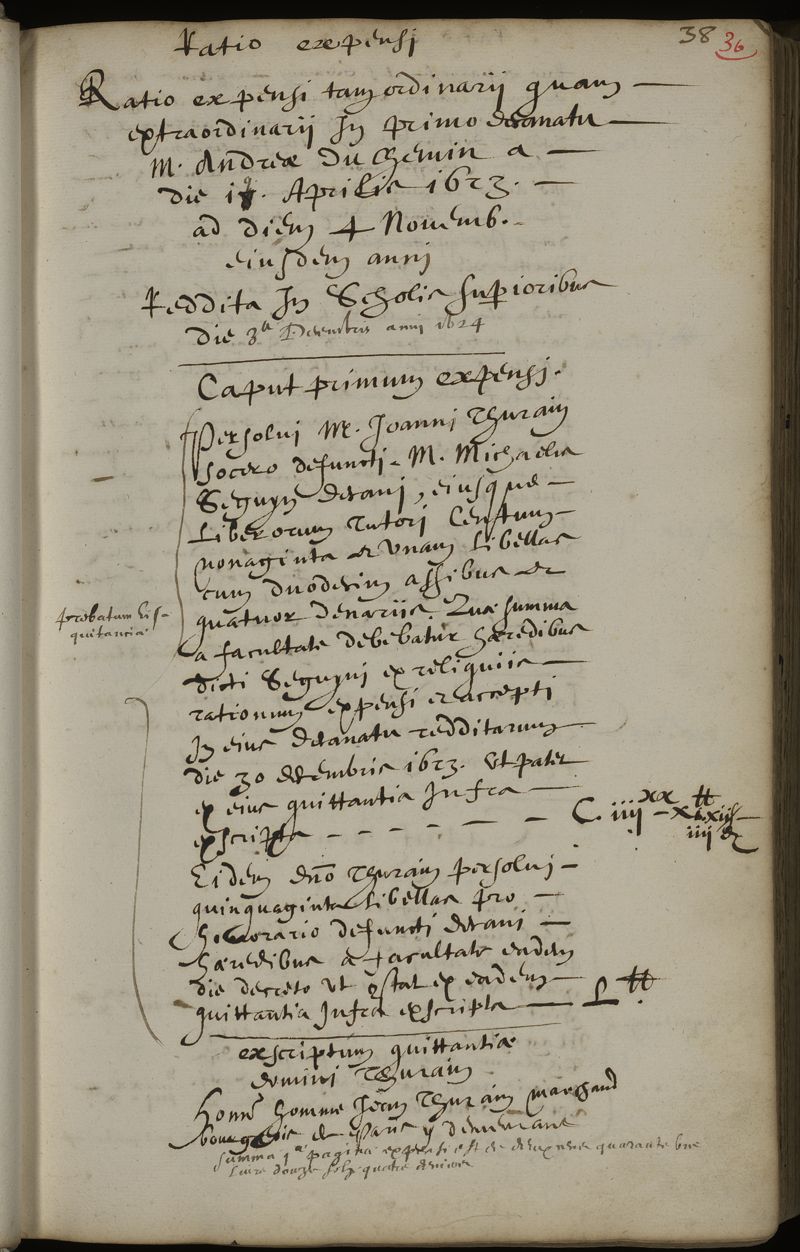 Ratio expensi
38 36
Ratio expensi tam ordinarij quam
extraordinarij In primo decanatu
M. Andreæ Du Chemin a
die Aprilis 1623.
ad diem 4 Novemb.
eiusdem anni
Reddita In Scholis superioribus
die 3a Decembris anni 1624
Caput primum expensi.
Persolvi M. Joanni Thurain
socero defuncti M. Michaelis
Seguyn decani, eiusque
Liberorum Tutori Centum
nonaginta et Unam Libellas
cum duodecim assibus et
quatuor denariis. Quæ summa
a facultate debebatur hæredibus
dicti Seguyni ex reliquiis
rationum expensi et accepti
In eius decanatu redditarum
die 30 decembris 1623. Ut patet
ex eius quittantia Infra
exscripta - - - - - - C. iiii xx xi tt xii s
iiii d
probatum his
quitancia
Eidem dno Thurain persolvi
quinquaginta Libellas pro
honorario defuncti decani
hæredibus a facultate eadem
die decreto ut constat ex eadem
quittantia Infra exscripta — L tt
exscriptum quittantiæ
domini Thurain
honne homme Jean Thurain marchand
bourgeois de Paris y demeurant
summa 1æ paginæ expensi est de deux cens quarante une
livre douze solz quatre deniers